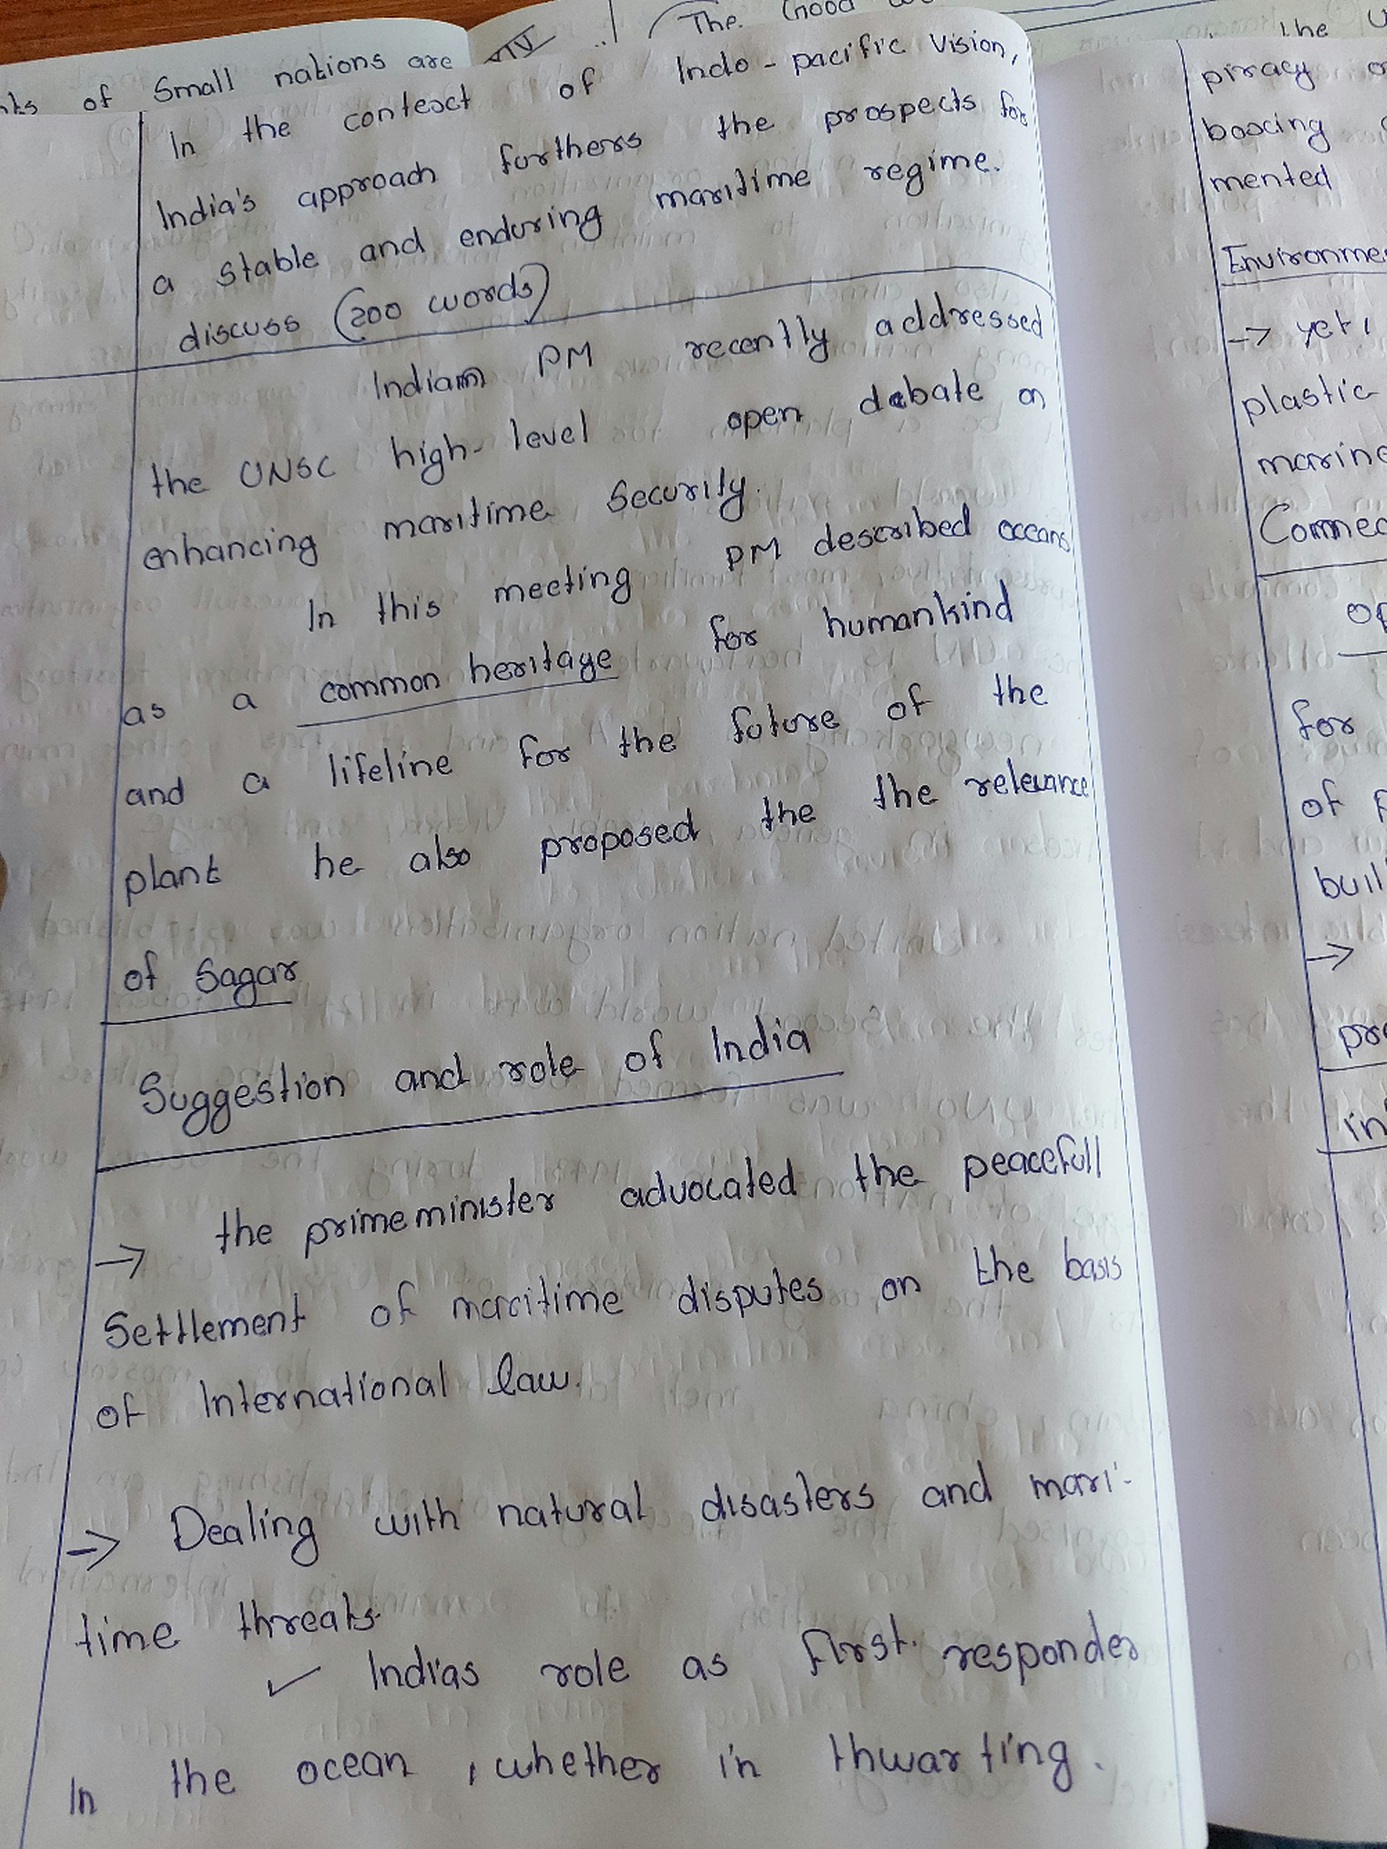 of Small nations are
XIV
The Good
In the context of Indo-pacific Vision,
India's approach furthers the prospects for
a stable and enduring maritime regime.
discuss (200 words)
Indian PM recently addressed
the UNSC high-level open debate on
enhancing maritime Security.
In this meeting PM described oceans
as a common heritage for humankind
and a lifeline for the future of the
plant he also proposed the the relevance
of Sagar
Suggestion and role of India
→ the primeminister advocated the peacefull
Settlement of maritime disputes on the basis
of International law.
→ Dealing with natural disasters and mari-
time threats
✓ Indias role as first responder
In the ocean, whether in thwarting.
the
piracy
booxing
mented
Environme
→ yet,
plastic
marine
Connec
op
for
of
buil
→
pro
in